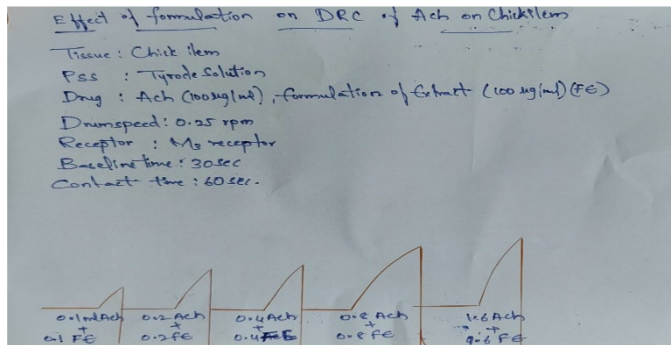 Effect of formulation on DRC of Ach on Chickilem
Tissue : Chick ilem
PSS : Tyrode Solution
Drug : Ach (100ug/ml), formulation of Extract (100 ug/ml) (FE)
Drumspeed : 0.25 rpm
Receptor : M3 receptor
Baseline time : 30sec
Contact time : 60 sec.
0.1ml Ach 0.2 Ach 0.4 Ach 0.8 Ach 1.6 Ach
+ + + + +
0.1 FE 0.2 FE 0.4 FE 0.8 FE FE